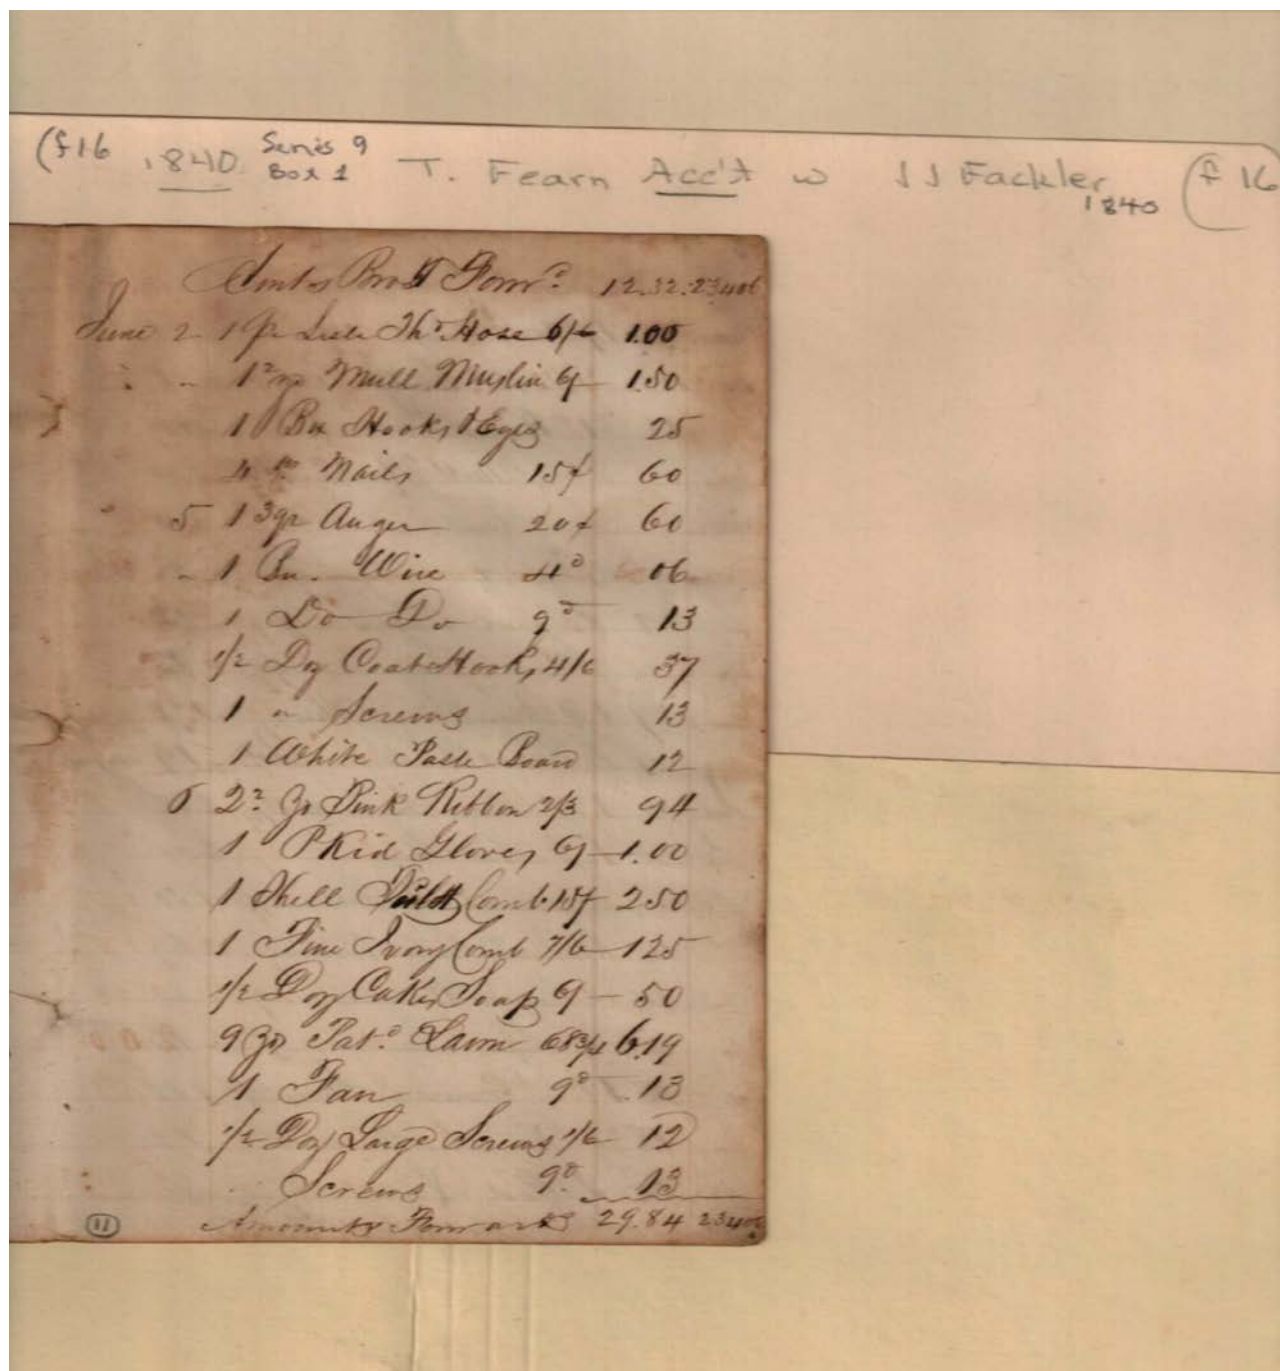 (f16 1840 Series 9 Box 1 T. Fearn Acc't w J J Fackler 1840 (f 16
Amts Brot Forwd 12.32. 23406
June 2 1 pr Lisle Thd Hose 6/6 1.00
" " 1 2 yd Mull Muslin 6/ 1.50
1 Box Hooks & Eyes 25
4 lb Nails 15¢ 60
" 5 1 3 qr Auger 20¢ 60
" 1 Bu. Wire 4d 06
1 Do Do 9d 13
1/2 Doz Coat Hooks 4/6 37
1 " Screws 13
1 White Paste Board 12
6 2 2 yd Pink Ribbon 2/3 94
1 P Kid Gloves 6/ 1.00
1 Shell Comb 15/ 2.50
1 Fine Ivory Comb 7/6 1 25
1/2 Doz Cakes Soap 6/ 50
9 yds Patd Lawn 68 3/4 6.19
1 Fan 9d .13
1/2 Doz Large Screws 1/6 12
Screws 9d 13
11 Amounts Forward 29.84 23406